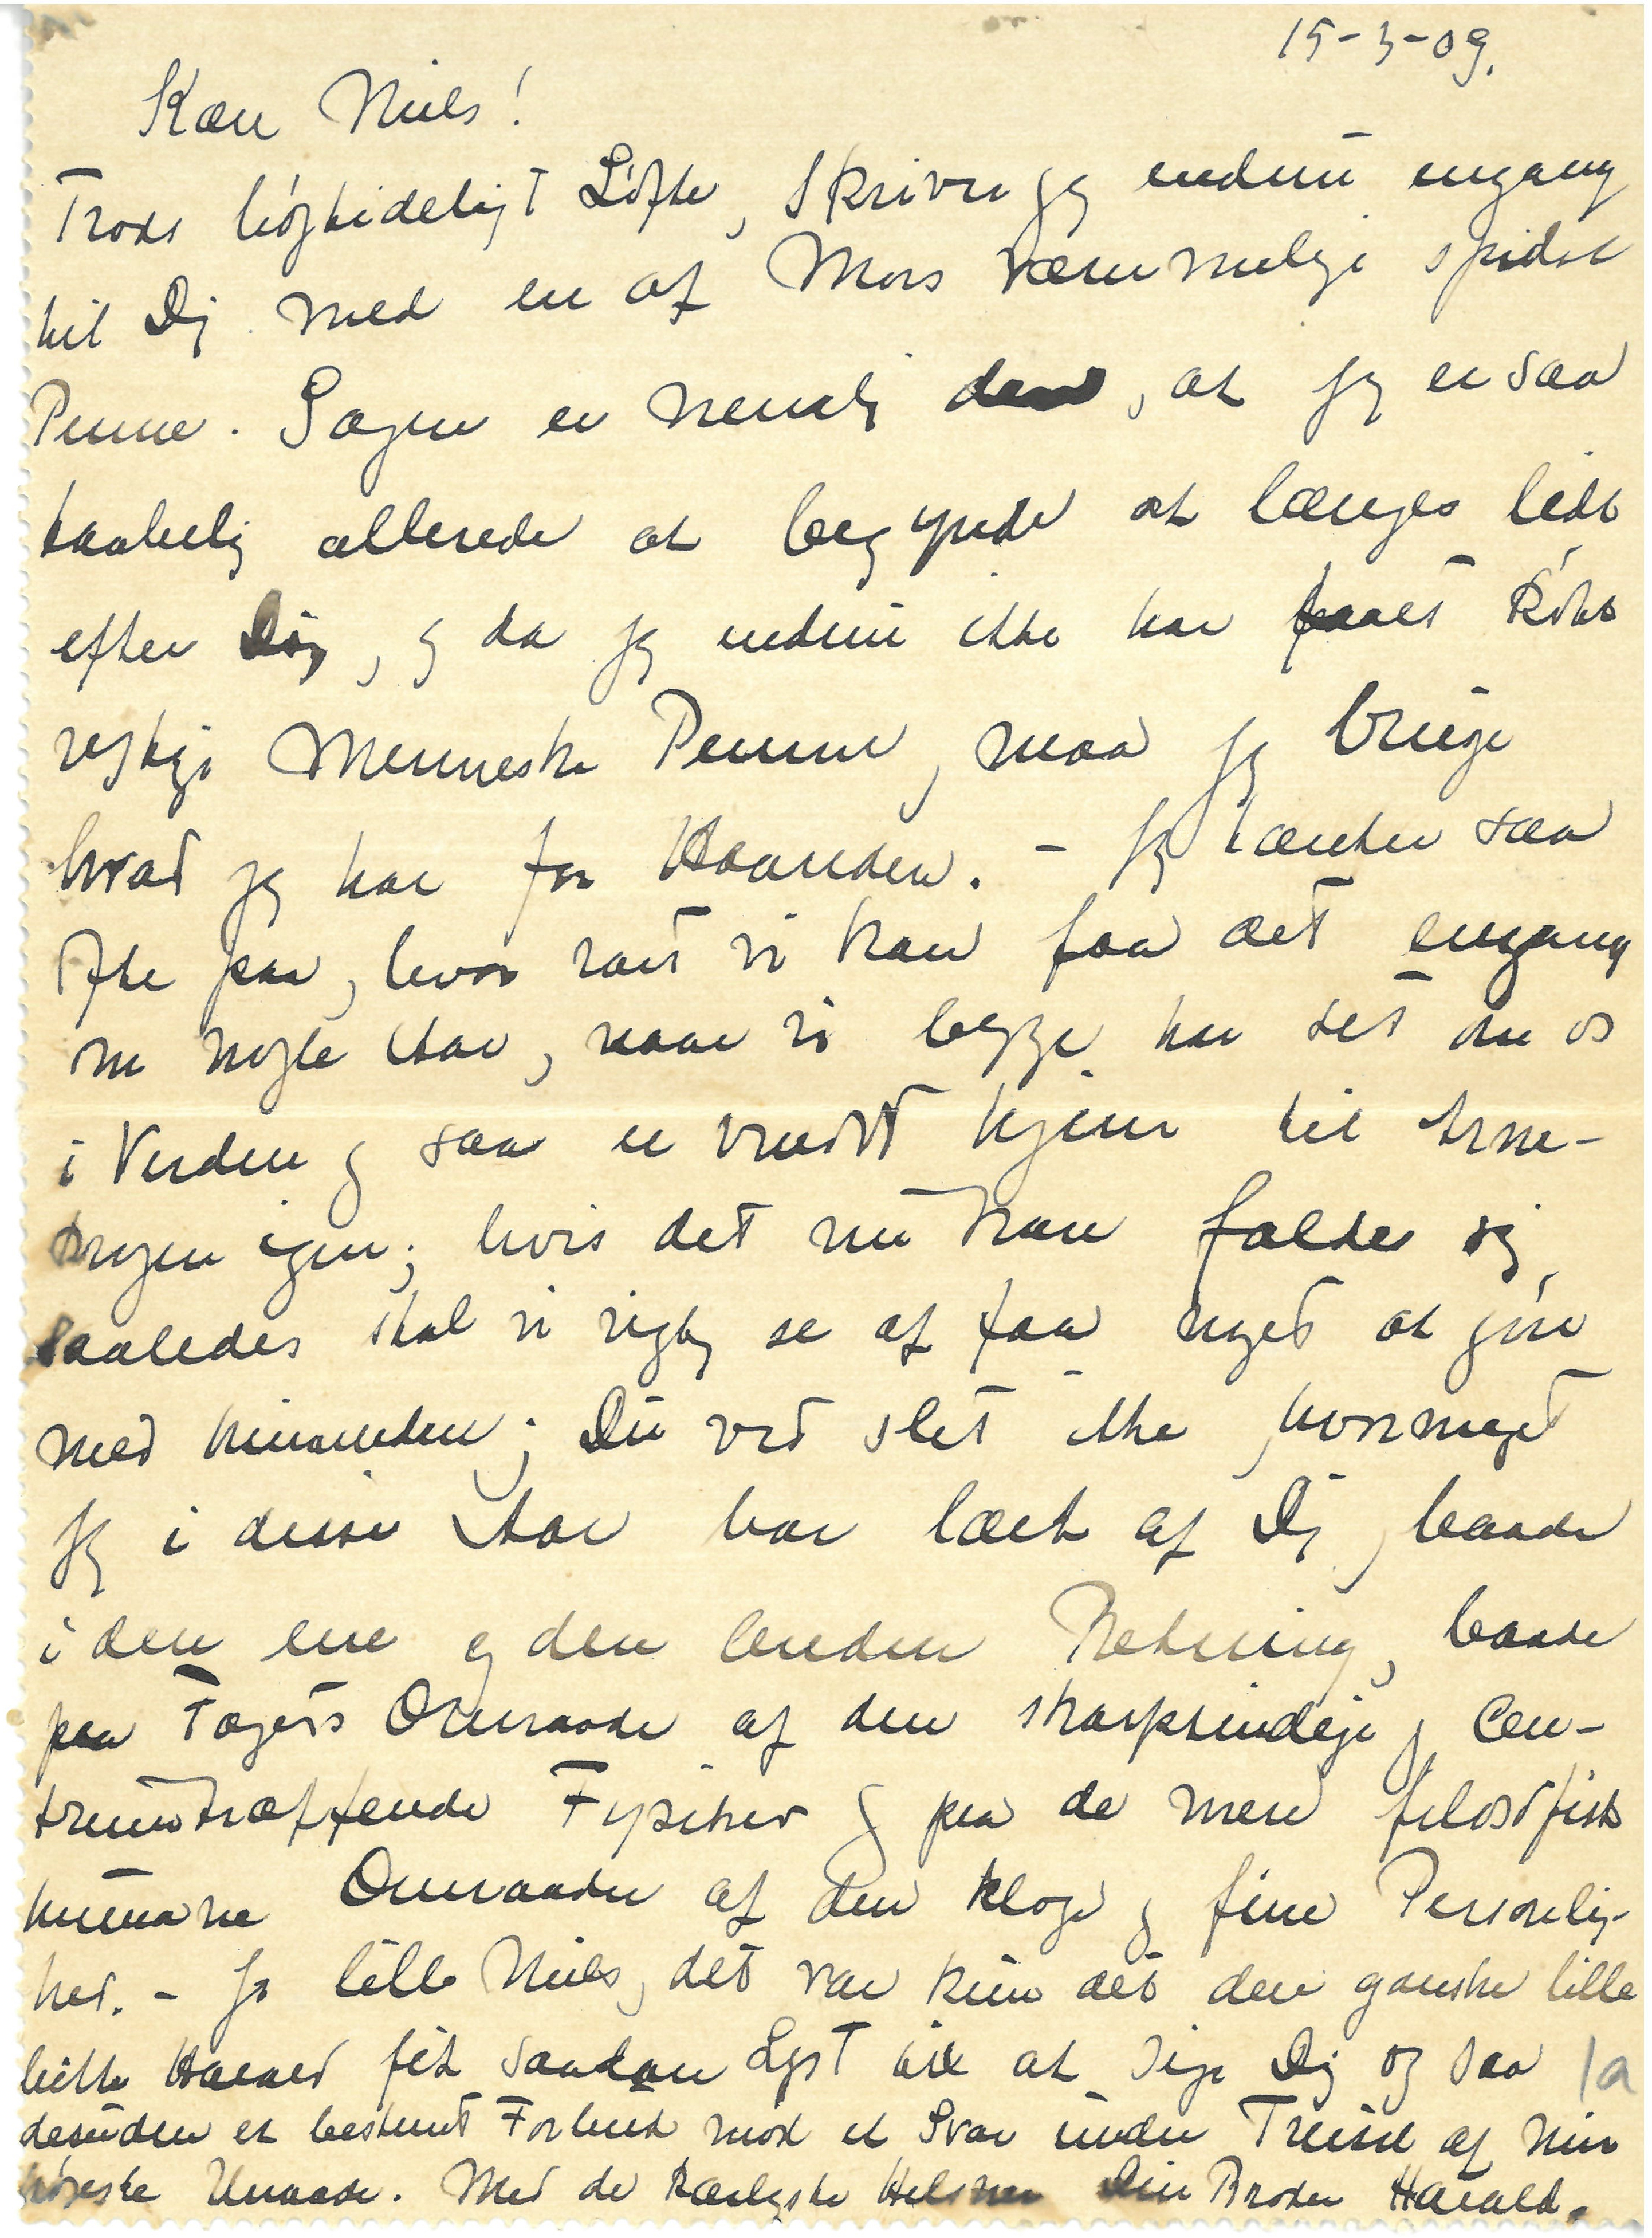 15-3-09.
Kære Niels!
Trods højtideligt Løfte, skriver jeg endnu engang
til Dig med en af Mors væmmelige spidse
Penne. Sagen er nemlig den, at jeg er saa
taabelig allerede at begynde at længes lidt
efter Dig, og da jeg endnu ikke har faaet købt
rigtige Menneske Penne, maa jeg bruge
hvad jeg har for Haanden. - Jeg tænker saa
ofte paa, hvor rart vi kan faa det engang
om nogle Aar, naar vi begge har set os om
i Verden og saa er vendt hjem til Arne-
krogen igen; hvis det nu kan falde sig
saaledes skal vi rigtig se at faa noget at gøre
med hinanden; Du ved slet ikke hvormeget
jeg i disse Aar har lært af Dig, baade
i den ene og den anden Retning, baade
paa Fagets Omraade af den skarpsindige, Cen-
trumtræffende Fysiker og paa de mere filosofisk
humane Omraader af den kloge og fine Personlig-
hed. - Ja lille Niels, det var kun det den ganske lille
bitte Harald fik saadan Lyst til at sige Dig og saa 1a
desuden et bestemt Forbud mod et Svar under Trusel af min
højeste Unaade. Med de kærligste Hilsner Din Broder Harald.